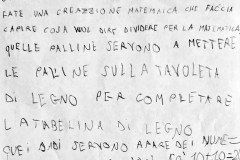 FATE UNA CREAZZIONE MATEMAICA CHE FACCIA
CAPIRE COSA VUOL DIRE DIVIDERE PER LA MATEMATICA
QUELLE PALLINE SERVONO A METTERE
LE PALLINE SULLA TAVOLETA
DI LEGNO PER COMPLETARE
LA TABELINA DI LEGNO
QUEI DADI SERVONO A FARE DEI NUME=
10+10=2